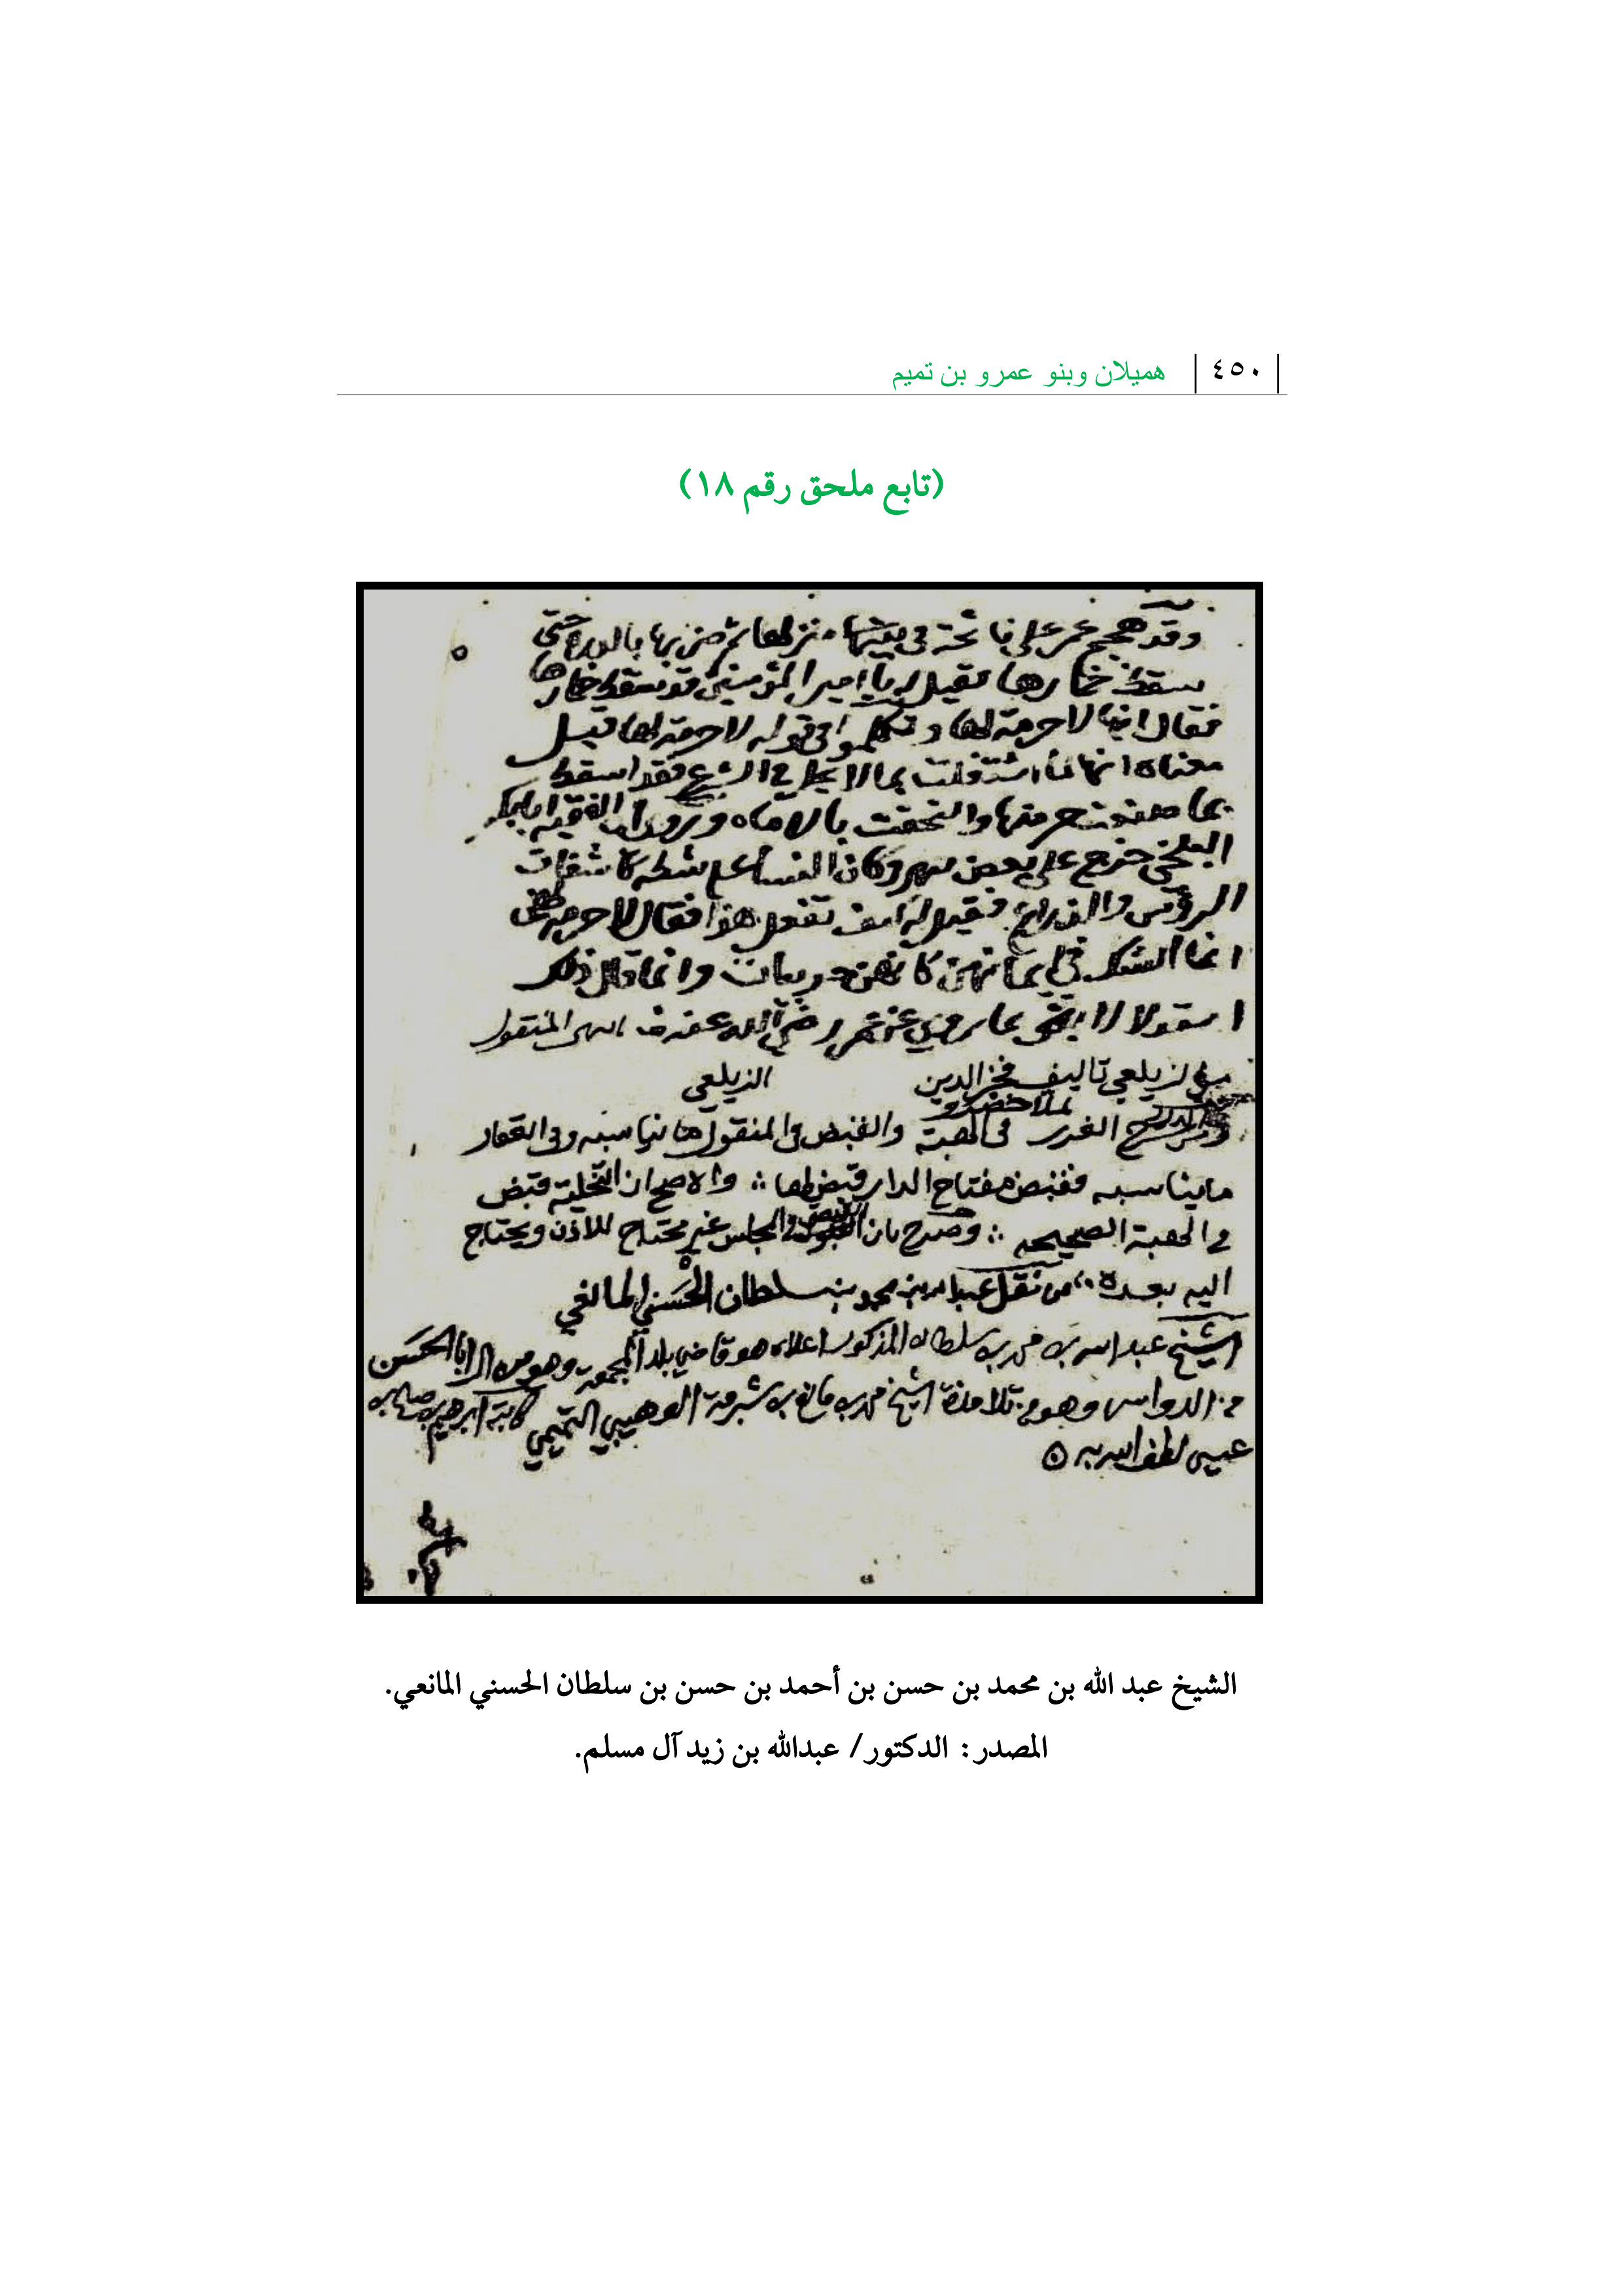 ٤٥٠ هميلان وبنو عمرو بن تميم
(تابع ملحق رقم ١٨)
وقد هجم عمر على نائحة في بيتها ثم ضربها بالدرة حتى
سقط خمارها فقيل له يا امير المؤمنين قد سقط خمارها
فقال انها لا حرمة لها وتكلموا في قوله لا حرمة لها قيل
معناه انها لما اشتغلت بما لا يحل في الشرع فقد اسقطت
بما صنعت حرمتها والتحقت بالاماء وروي ان الفقيه ابا بكر
البلخي خرج على بعض نهر وكان النساء على شطه كاشفات
الرؤس والذراع فقيل له كيف تفعل هذا فقال لا حرمة لهن
انما الشك في ايمانهن كانهن حربيات وانما قال ذلك
عمر رضي الله عنه المنقول
من الزيلعي تاليف فخر الدين الزيلعي
ملا خسرو
الغرر في الهبة والقبض في المنقول ما يناسبه وفي العقار
ما يناسبه فقبض مفتاح الدار قبض لها والاصح ان التخلية قبض
في الهبة الصحيحه وصرح بان القبض في المجلس غير محتاج للاذن ويحتاج
اليه بعده من نقل عبد الله بن محمد بن سلطان الحسني المانعي
الشيخ عبد الله بن محمد بن سلطان المذكور اعلاه هو قاضي بلد المجمعة وهو من ال ابا الحسن
من الدواسر وهو من تلامذة الشيخ محمد بن مانع بن شبرمة الوهيبي التميمي كاتبه ابرهيم بن صالح بن
عيسى لطف الله به
الشيخ عبد الله بن محمد بن حسن بن أحمد بن حسن بن سلطان الحسني المانعي.
المصدر: الدكتور/ عبدالله بن زيد آل مسلم.